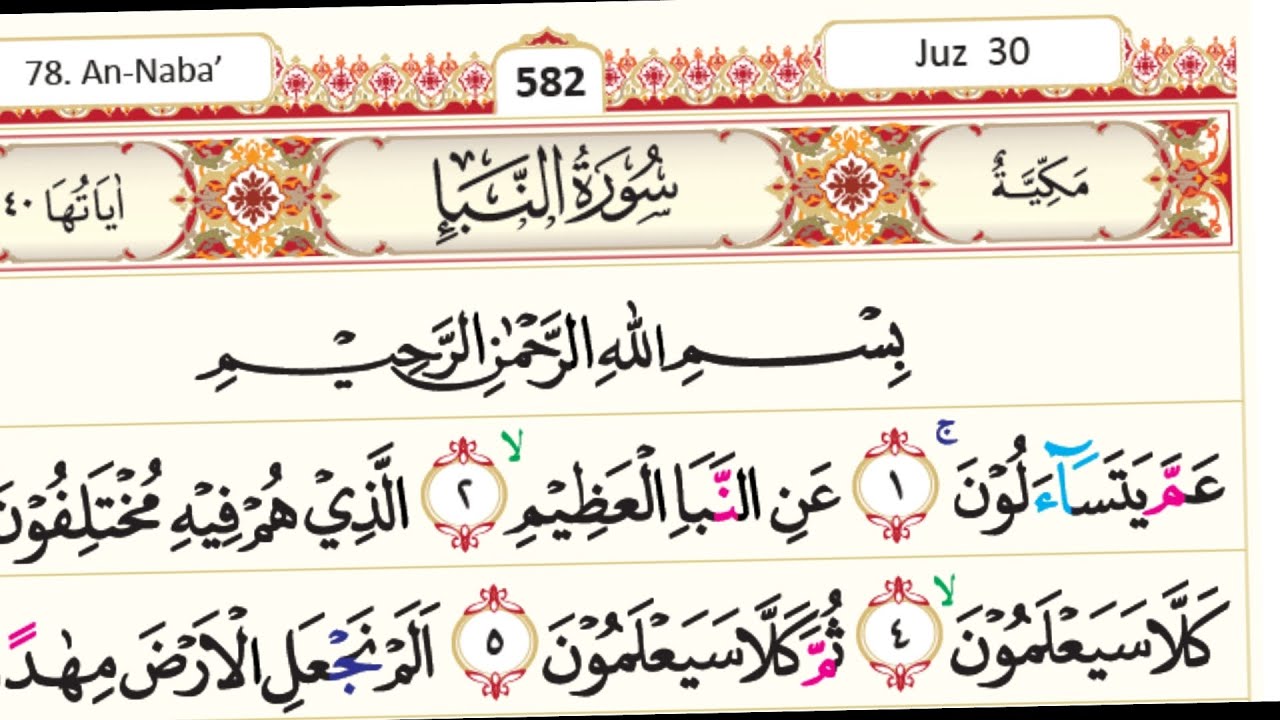 78. An-Naba’ 582 Juz 30
مَكِّيَّةٌ سُوْرَةُ النَّبَإِ اٰيَاتُهَا ٤٠
بِسْمِ اللّٰهِ الرَّحْمٰنِ الرَّحِيْمِ
عَمَّ يَتَسَاۤءَلُوْنَۚ ١ عَنِ النَّبَاِ الْعَظِيْمِۙ ٢ الَّذِيْ هُمْ فِيْهِ مُخْتَلِفُوْنَ
كَلَّا سَيَعْلَمُوْنَۙ ٤ ثُمَّ كَلَّا سَيَعْلَمُوْنَ ٥ اَلَمْ نَجْعَلِ الْاَرْضَ مِهٰدًا